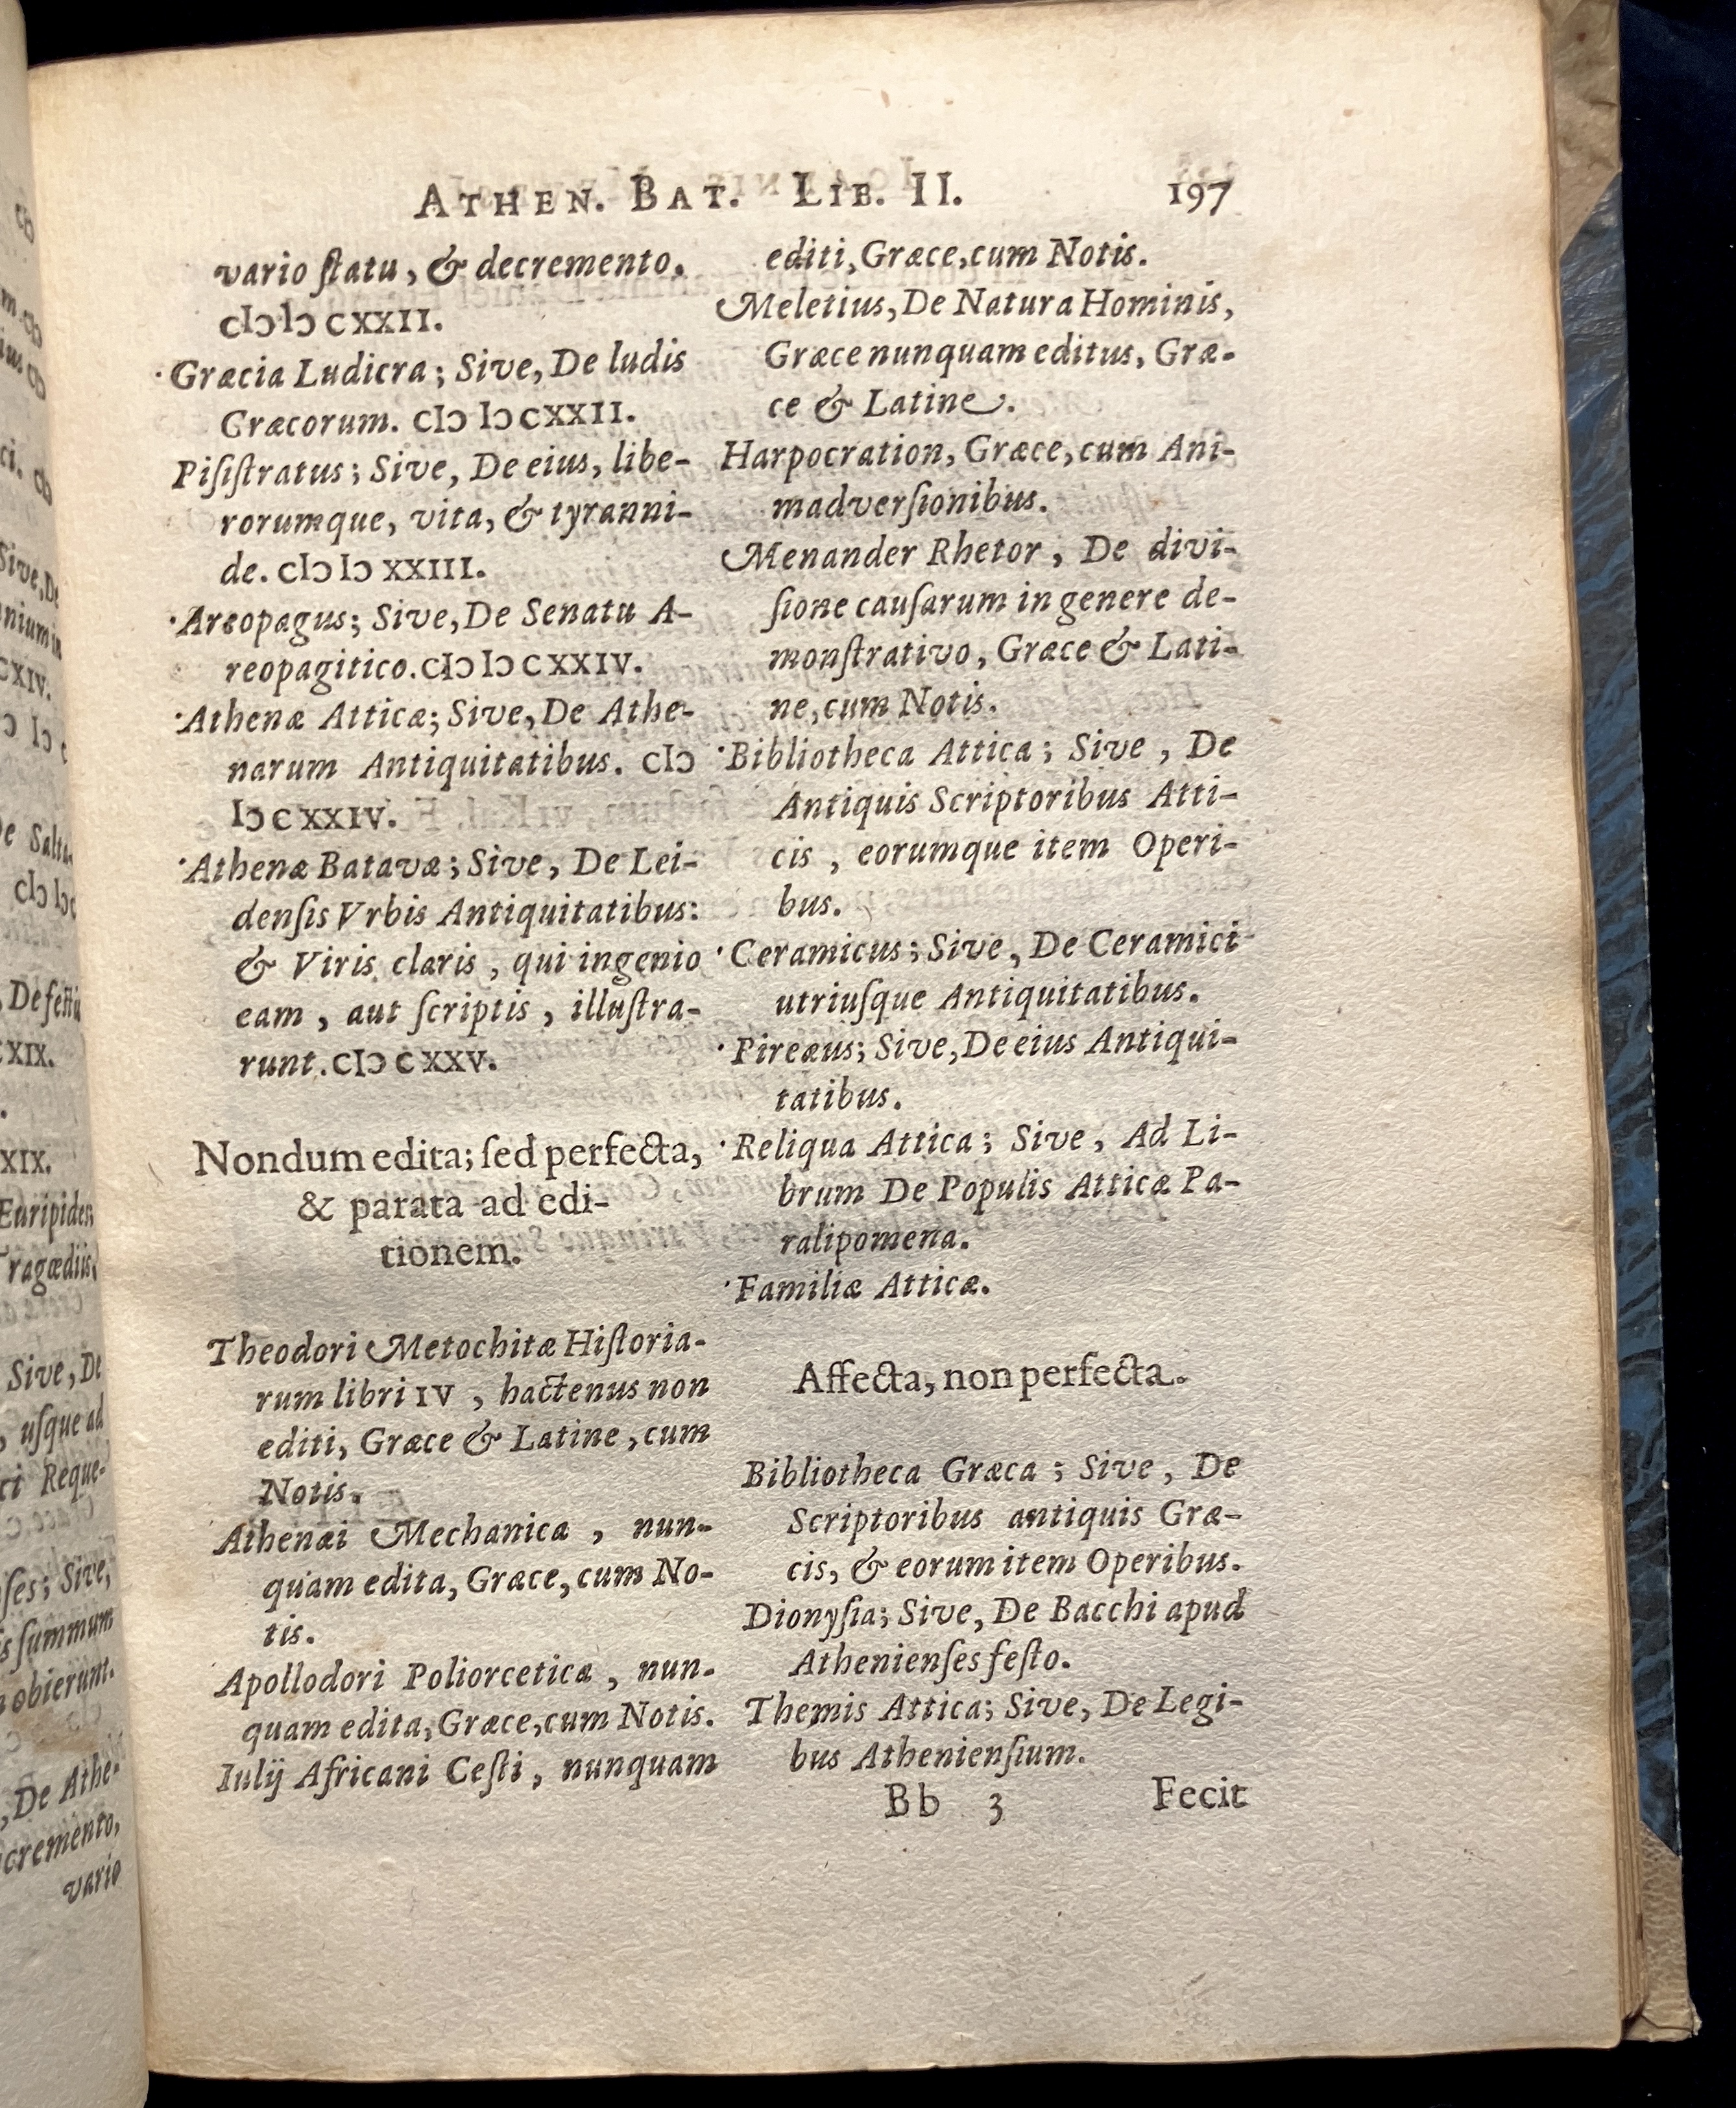 ATHEN. BAT. LIB. II. 197
vario ſtatu, & decremento.
cIↄ Iↄ cxxII.
·Græcia Ludicra; Sive, De ludis
Græcorum. cIↄ Iↄ cxxII.
Piſiſtratus; Sive, De eius, libe-
rorumque, vita, & tyranni-
de. cIↄ Iↄ xxIII.
·Areopagus; Sive, De Senatu A-
reopagitico. cIↄ Iↄ cxxIV.
·Athenæ Atticæ; Sive, De Athe-
narum Antiquitatibus. cIↄ
Iↄ cxxIV.
·Athenæ Batavæ; Sive, De Lei-
denſis Vrbis Antiquitatibus:
& Viris claris, qui ingenio
eam, aut ſcriptis, illuſtra-
runt. cIↄ cxxv.
Nondum edita; ſed perfecta,
& parata ad edi-
tionem.
Theodori Metochitæ Hiſtoria-
rum libri IV, hactenus non
editi, Græce & Latine, cum
Notis.
Athenæi Mechanica, nun-
quam edita, Græce, cum No-
tis.
Apollodori Poliorcetica, nun-
quam edita, Græce, cum Notis.
Iulij Africani Ceſti, nunquam
editi, Græce, cum Notis.
Meletius, De Natura Hominis,
Græce nunquam editus, Græ-
ce & Latine.
Harpocration, Græce, cum Ani-
madverſionibus.
Menander Rhetor, De divi-
ſione cauſarum in genere de-
monſtrativo, Græce & Lati-
ne, cum Notis.
·Bibliotheca Attica; Sive, De
Antiquis Scriptoribus Atti-
cis, eorumque item Operi-
bus.
·Ceramicus; Sive, De Ceramici
utriuſque Antiquitatibus.
·Pireæus; Sive, De eius Antiqui-
tatibus.
·Reliqua Attica; Sive, Ad Li-
brum De Populis Atticæ Pa-
ralipomena.
·Familiæ Atticæ.
Affecta, non perfecta.
Bibliotheca Græca; Sive, De
Scriptoribus antiquis Græ-
cis, & eorum item Operibus.
Dionyſia; Sive, De Bacchi apud
Athenienſes feſto.
Themis Attica; Sive, De Legi-
bus Athenienſium.
Bb 3 Fecit